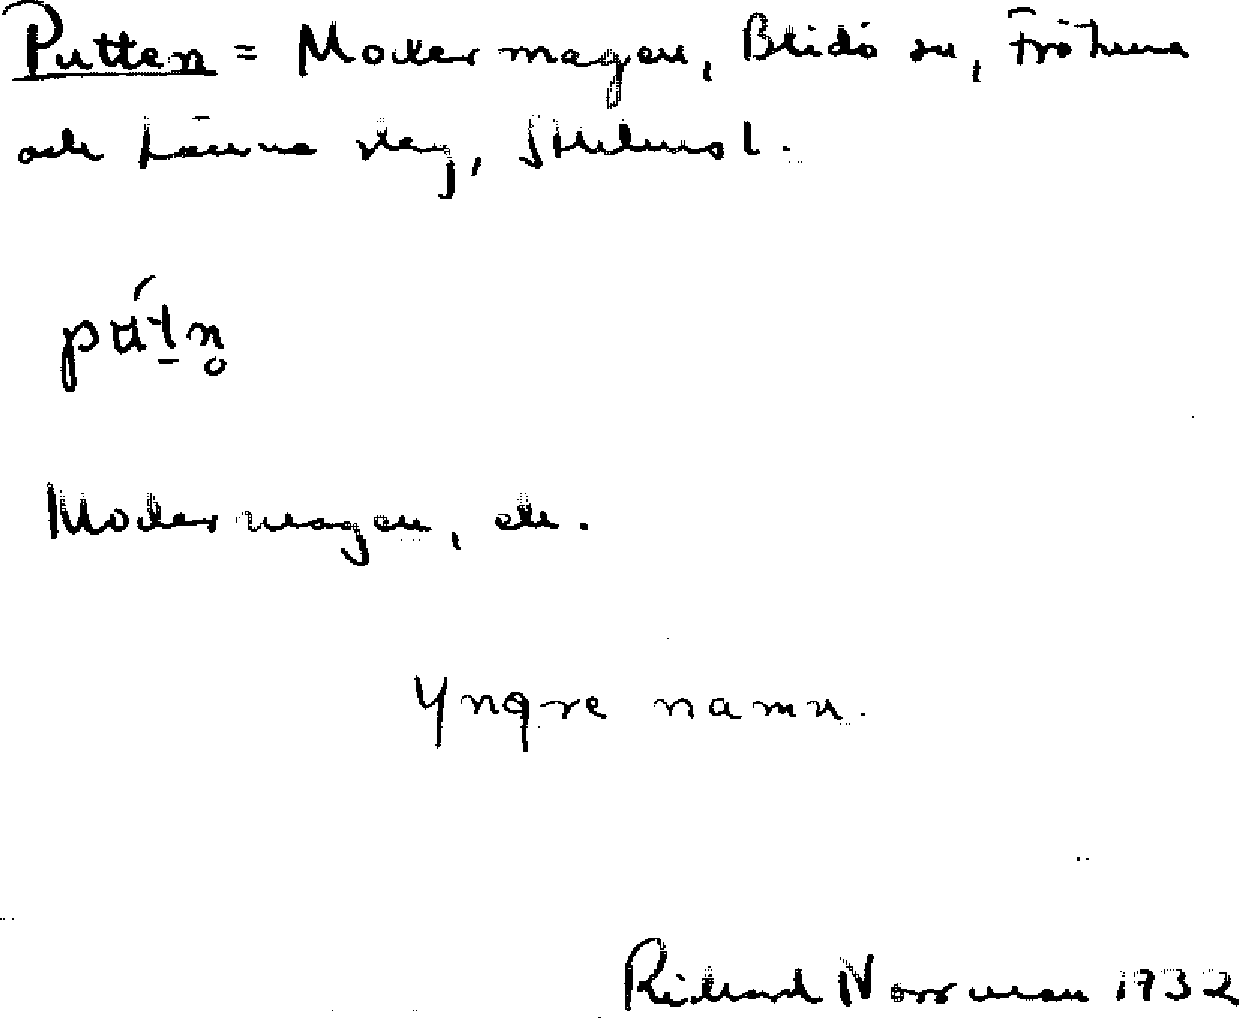 Putten = Modermagen, Blidö sn, Frötuna
och Länna skg, Sthlms l.
pút̠n̥
Modermagen, ö.
Yngre namn.
Rickard Norrman 1932